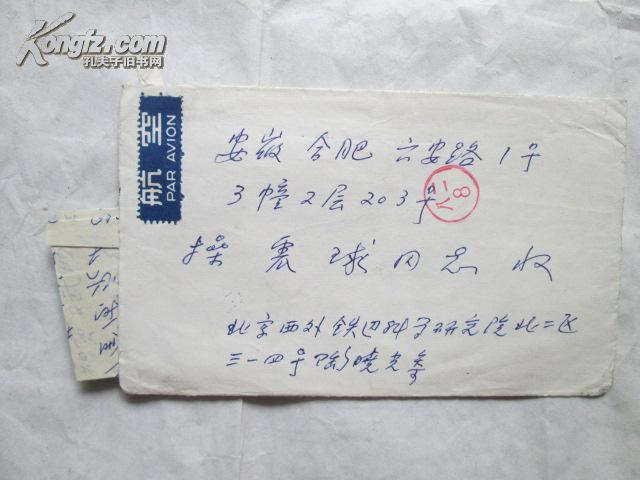 Kongfz.com
孔夫子旧书网
航空
PAR AVION
安徽 合肥 六安路 1号
3幢2层203号
操震球同志 收
北京西外铁道科学研究院北二区
三一四号 晓光